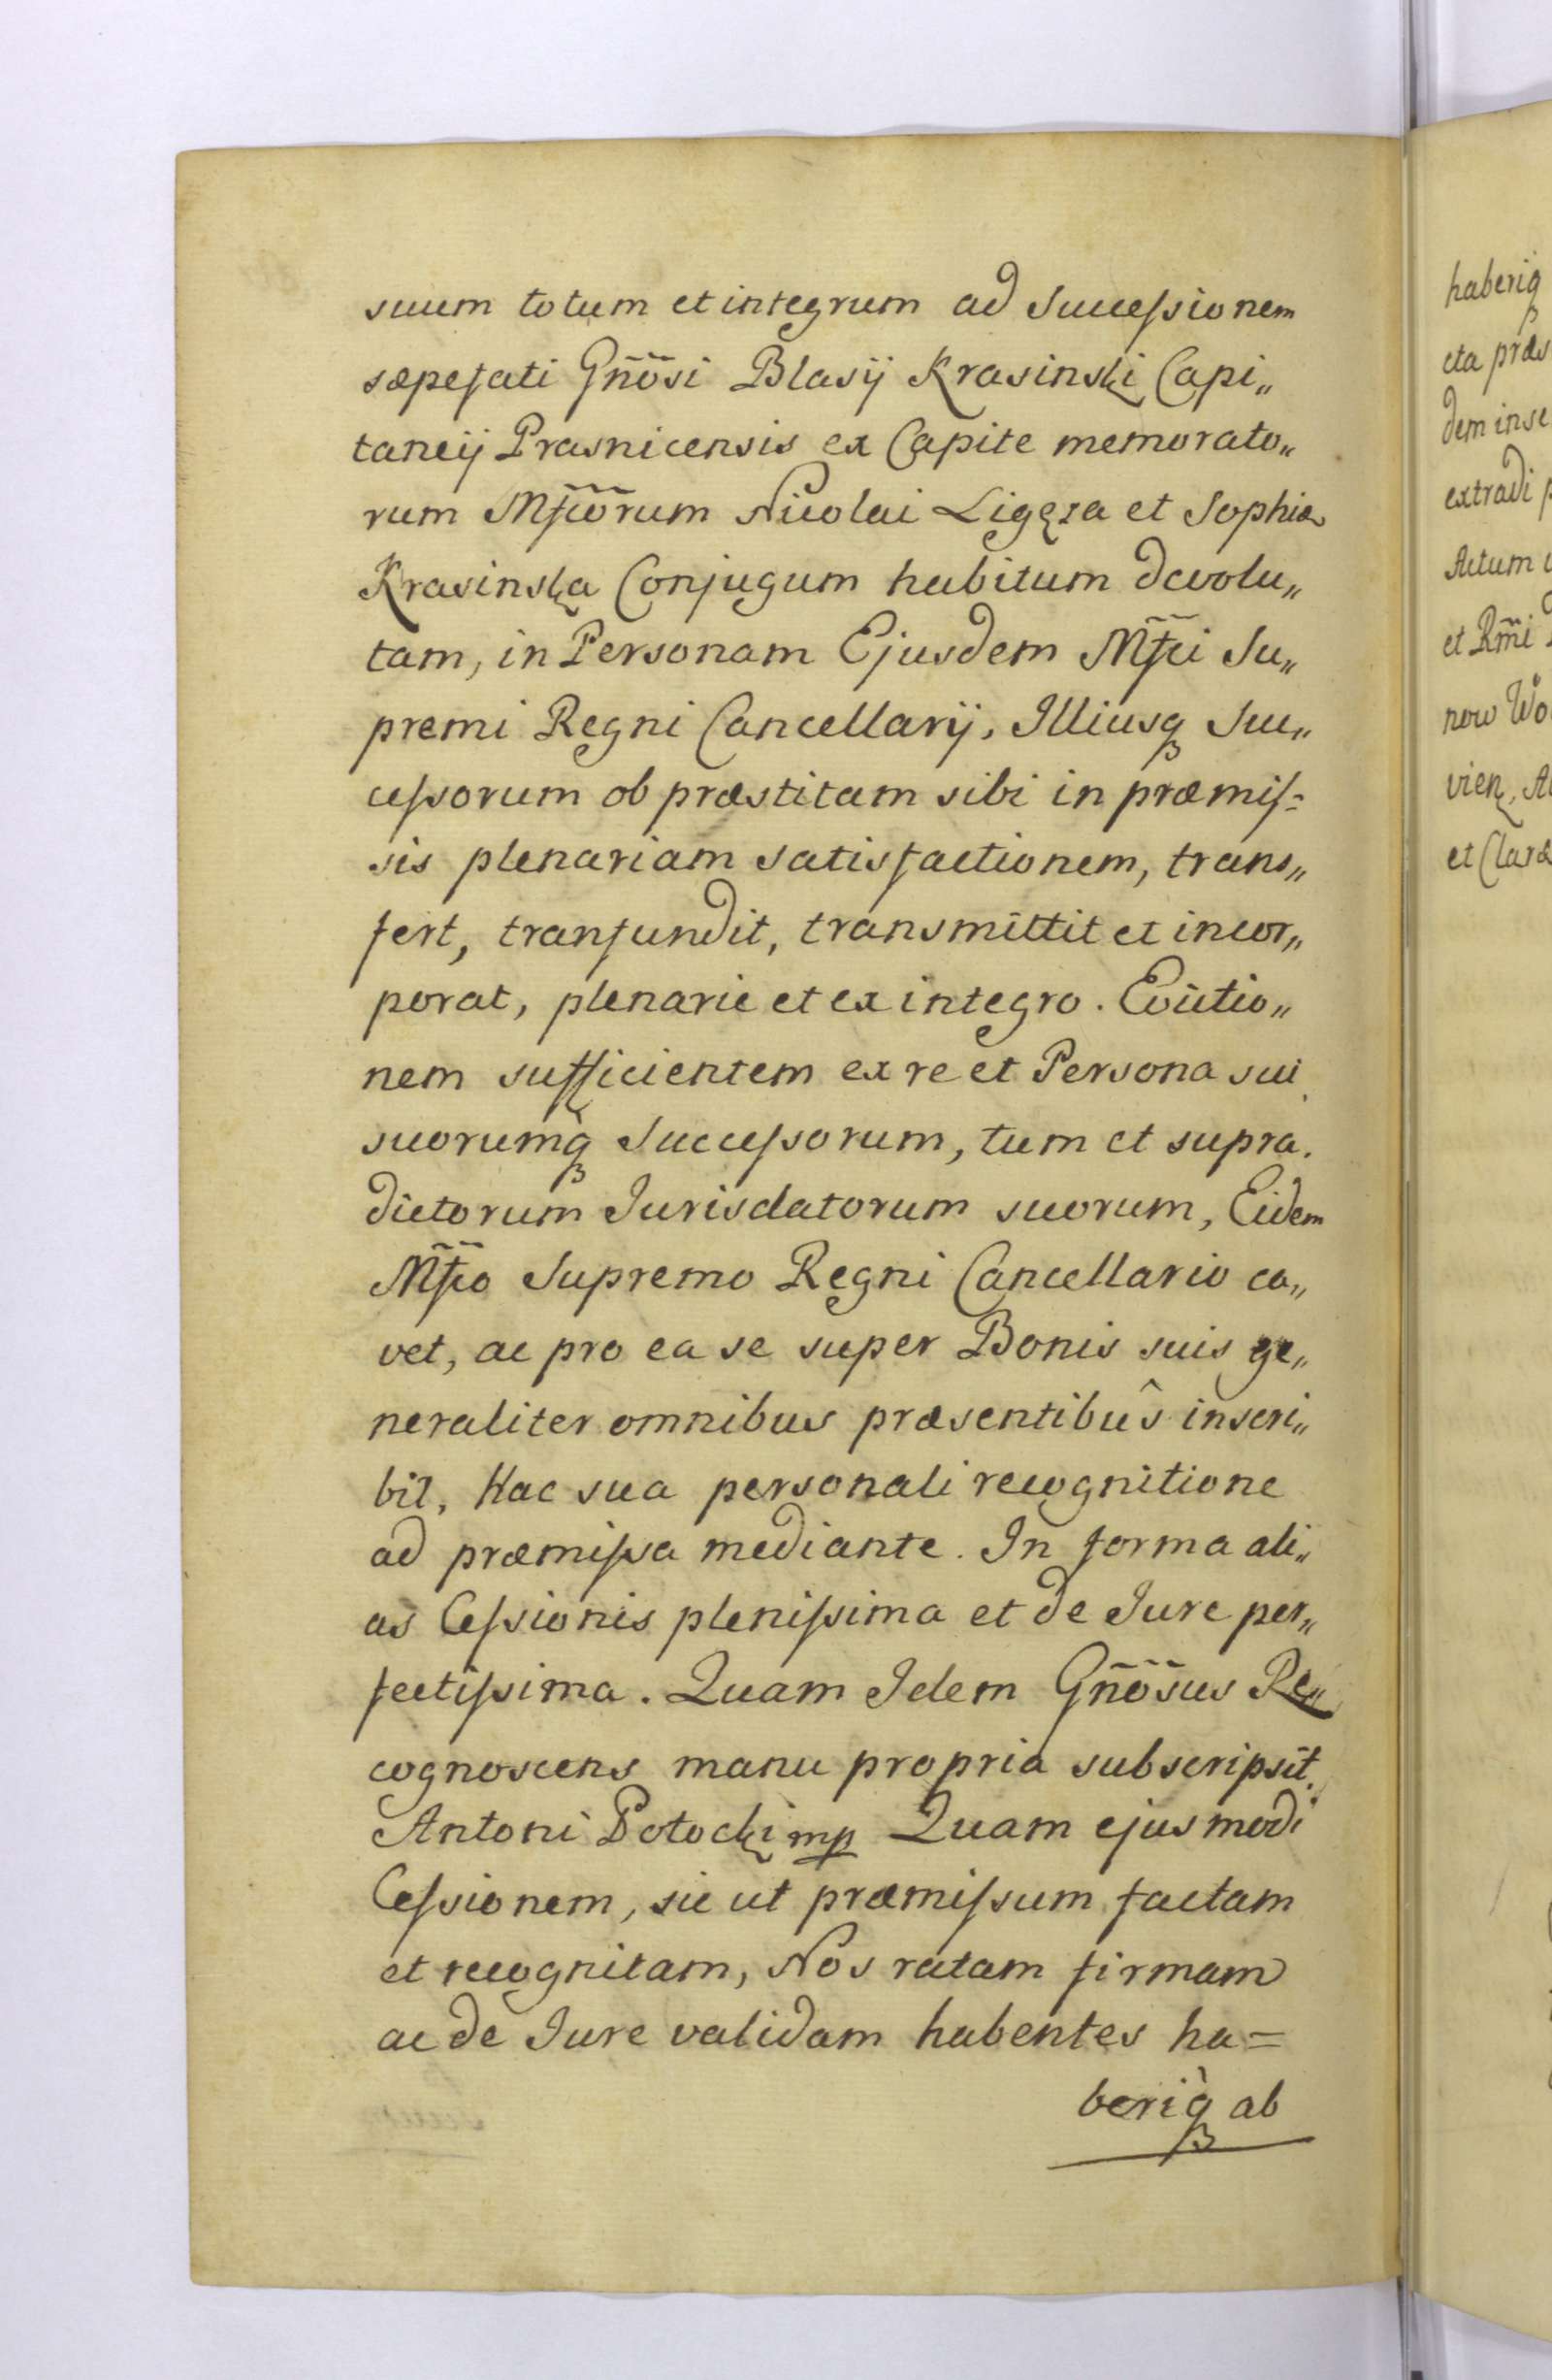 suum totum et integrum ad Successionem
sæpefati Gnõsi Blasij Krasinski Capi„
taneij Prasnicensis ex Capite memorato„
rum Mfcorum Nicolai Ligęza et Sophiæ
Krasinska Conjugum habitum devolu„
tam, in Personam Ejusdem Mfci Su„
premi Regni Cancellarij, Illiusq Suc„
cessorum ob præstitam sibi in præmis=
sis plenariam satisfactionem, trans„
fert, transfundit, transmittit et incor„
porat, plenarie et ex integro. Evictio„
nem sufficientem ex re et Persona sui
suorumq Successorum, tum et supra.
dictorum Jurisdatorum suorum, Eidem
Mfco Supremo Regni Cancellario ca„
vet, ac pro ea se super Bonis suis ge„
neraliter omnibus præsentibûs inscri„
bit, Hac sua personali recognitione
ad præmissa mediante. In forma ali„
as Cessionis plenissima et de Jure per„
fectissima. Quam Idem Gnõsus Re„
cognoscens manu propria subscripsit.
Antoni Potocki mp Quam ejusmodi
Cessionem, sic ut præmissum factam
et recognitam, Nos ratam firmam
ac de Jure validam habentes ha=
beriq ab
haberiq
cta præs
dem inse
extradi p
Actum
et Rm̃i
now Wo
vien, A
et Claræ